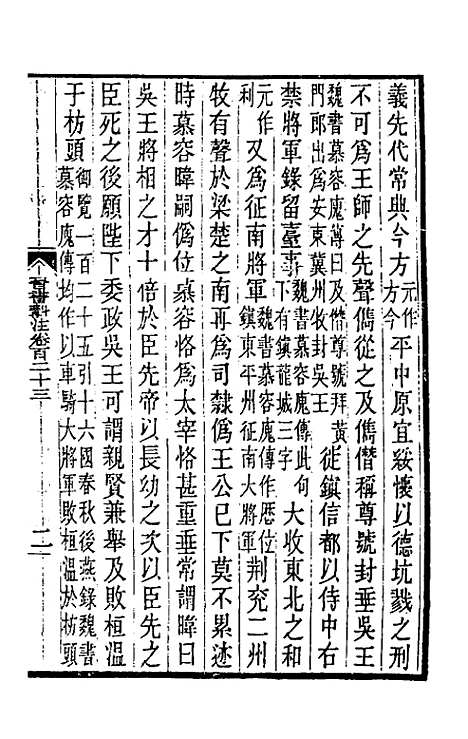 義先代常典今方元作方今平中原宜綏懷以德坑戮之刑
不可爲王師之先聲儁從之及儁僭稱尊號封垂吳王
魏書慕容廆傳曰及僭尊號拜黃門郎出爲安東冀州牧封吳王徙鎮信都以侍中右
禁將軍錄留臺事下有鎮龍城三字魏書慕容廆傳此句大收東北之和
元作利又爲征南將軍魏書慕容廆傳作歷位鎮東平州征南大將軍荆兗二州
牧有聲於梁楚之南再爲司隸僞王公已下莫不累迹
時慕容暐嗣僞位慕容恪爲太宰恪甚重垂常謂暐曰
吳王將相之才十倍於臣先帝以長幼之次以臣先之
臣死之後願陛下委政吳王可謂親賢兼舉及敗桓溫
于枋頭御覽一百二十五引十六國春秋後燕錄魏書慕容廆傳均作以車騎大將軍敗桓溫於枋頭
晉書斠注卷百二十三